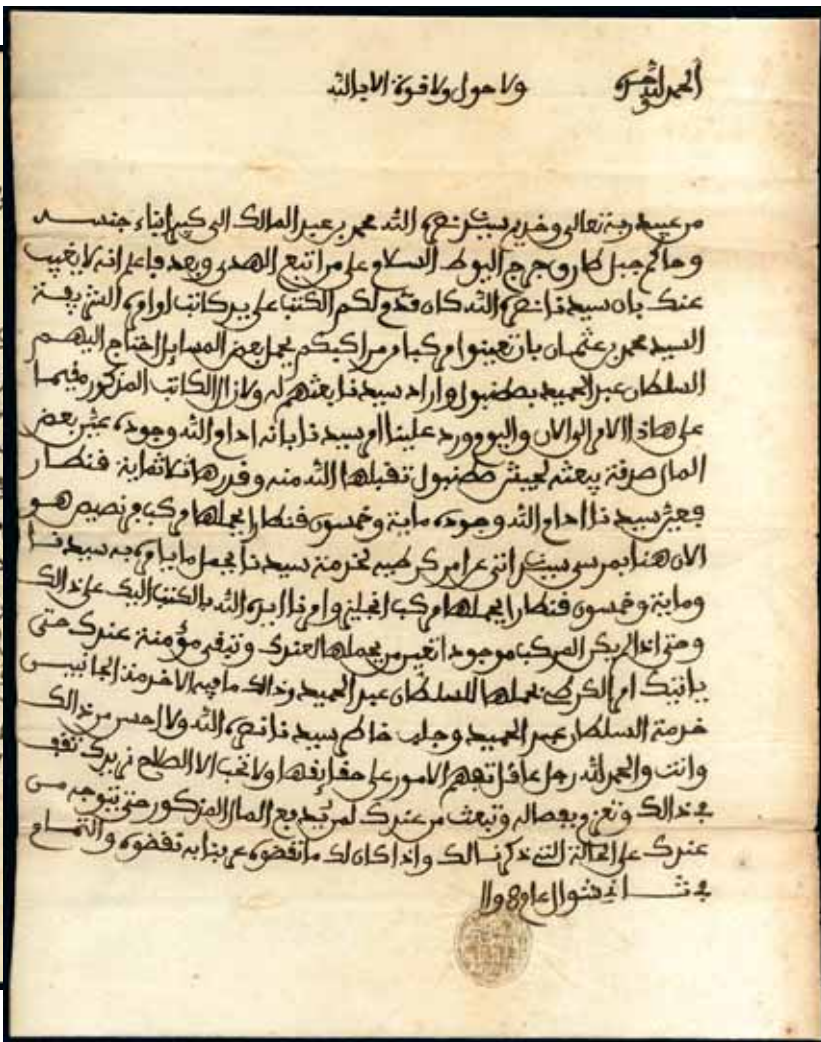 الحمد لله وحده ولا حول ولا قوة الا بالله
من عبيد ربه تعالى وخديم سيده نصره الله محمد بن عبد المالك الى كبير ابناء جنسه
وحاكم جبل طارق جرج اليوط السلام على من اتبع الهدى وبعد فاعلم انه لا يغيب
عنك بان سيدنا نصره الله كان قدم لكم الكتب على يد كاتب اوامره الشريفة
السيد محمد بن عثمان بان تعينوا مركبا من مراكبكم يحمل بعض المسايل احتاج اليهم
السلطان عبد الحميد بصطنبول واراد سيدنا بعثهم له ولا زال الكاتب المذكور مقيما
على هاذا الامر الى الان واليوم ورد علينا امر سيدنا بانه ادام الله وجوده عين بعض
المال صدقة يبعثه لجيش صطنبول تقبلها الله منه وقدرها ثلاثماية قنطار
فعين سيدنا ادام الله وجوده ماية وخمسون قنطارا يحملها مركب هو
الان هنا بمرسى اتى لخدمة سيدنا يحمل ما يامره به سيدنا
وماية وخمسون قنطارا يحملها مركب انجليز وامرنا ايده الله بالكتب اليك على ذالك
وحتى اذا لم يكن المركب موجودا تغير من يحملها لعندك وتبقى مؤمنة عندك حتى
ياتيك امر الكرطي تحملها للسلطان عبد الحميد وذالك ما فيه الا خدمة الجانبين
خدمة السلطان عبد الحميد وجلب خاطر سيدنا نصره الله ولا احسن من ذالك
وانت والحمد لله رجل عاقل تفهم الامور على حقايقها ولا تحب الا الصلاح نريدك تقف
في ذالك وتعزم بفصاله وتبعث من عندك لمن يدفع المال المذكور حتى يتوجه من
عندك على الحالة التي ذكرنا لك واذا كان لك ما تقضوه عربنا به نقضوه والتمام
في ثاني شوال عام